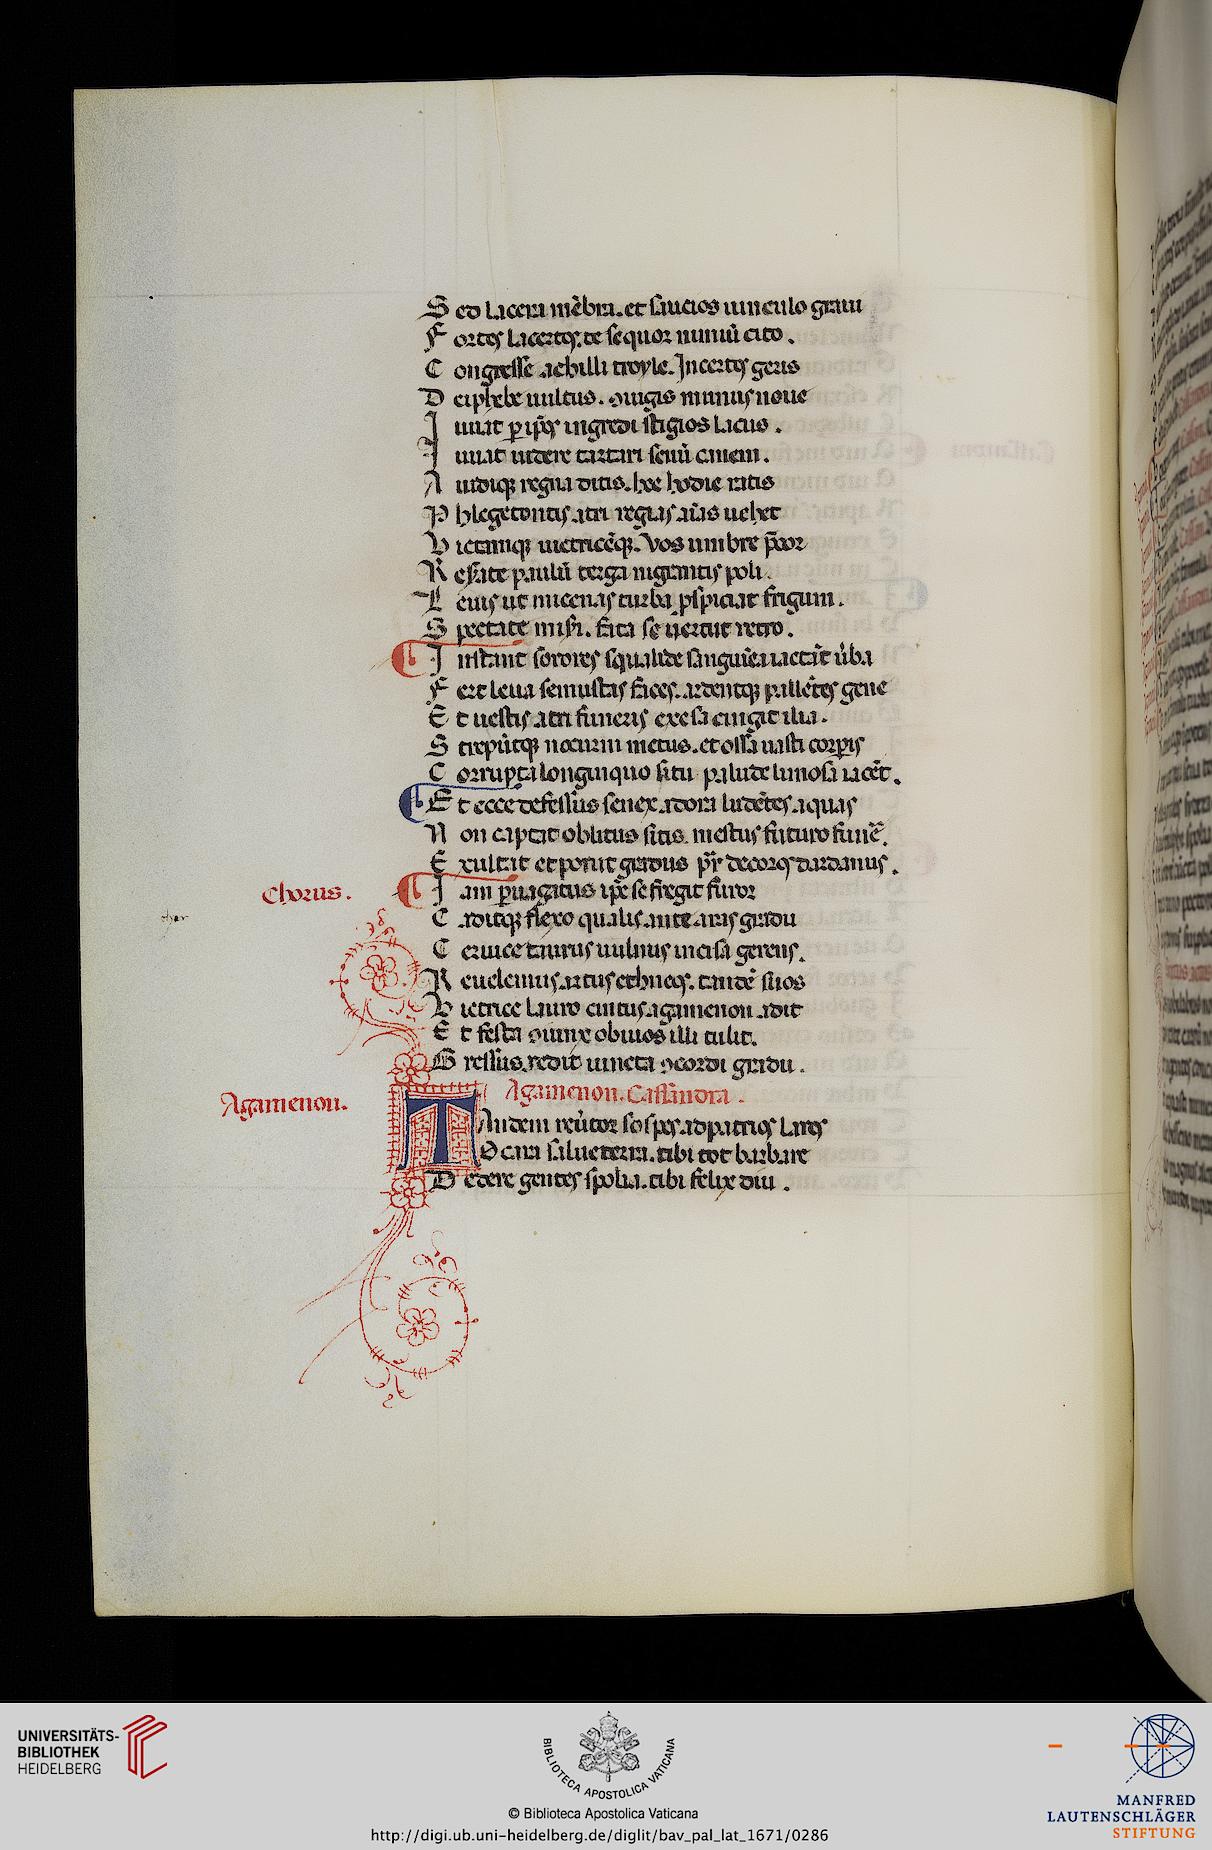 Sed lacera mẽbra. et saucios uinculo graui
Fortes lacertos. te sequor nimiũ cito.
Congresse achilli troyle. Incertos geris
Deiphebe uultus. ꝯiugis munus noue
Iuuat ꝑ ip̃os ingredi stigios lacus.
Iuuat uidere tartari seuũ canem.
Auidiqꝫ regna ditis. hec hodie ratis
Phlegetontis atri regias aĩas uehet
Victamqꝫ uictricẽqꝫ. Vos umbre p̃cor
Restate paulũ terga nigrantis poli.
Leuis ut micenas turba ꝓspiciat frigum.
Spectate miseri. fata se uertunt retro.
Instant sorores squalide sanguinea iactãt ũba
Fert leua semustas faces. ardentqꝫ pallẽtes gene
Et uestis atri funeris exesa cingit ilia.
Strepũtqꝫ nocturni metus. et ossa uasti corꝑis
Corrupta longinquo situ palude limosa iacẽt.
Et ecce defessus senex adora ludẽtes aquas
Non captat oblitus sitis. mestus futuro funẽ.
Exultat et ponit gradus pr̃ decoros dardanus.
Chorus.
Iam ꝑuagatus ip̃e se fregit furor
Caditqꝫ flexo qualis ante aras gradu
Ceruice taurus uulnus incisa gerens.
Reuelemus artus ethneos. tandẽ suos
Victrice lauro cinctus agamenon adit
Et festa ꝯiunx obuios illi tulit.
Gressus. redit iuncta ꝯcordi gradu.
Agamenon. Cassandra.
Agamenon.
TAndem reũtor sospes ad patrios lares
O cara salue terra. tibi tot barbare
Dedere gentes spolia. tibi felix diu.
UNIVERSITÄTS-
BIBLIOTHEK
HEIDELBERG
BIBLIOTECA APOSTOLICA VATICANA
© Biblioteca Apostolica Vaticana
http://digi.ub.uni-heidelberg.de/diglit/bav_pal_lat_1671/0286
MANFRED
LAUTENSCHLÄGER
STIFTUNG